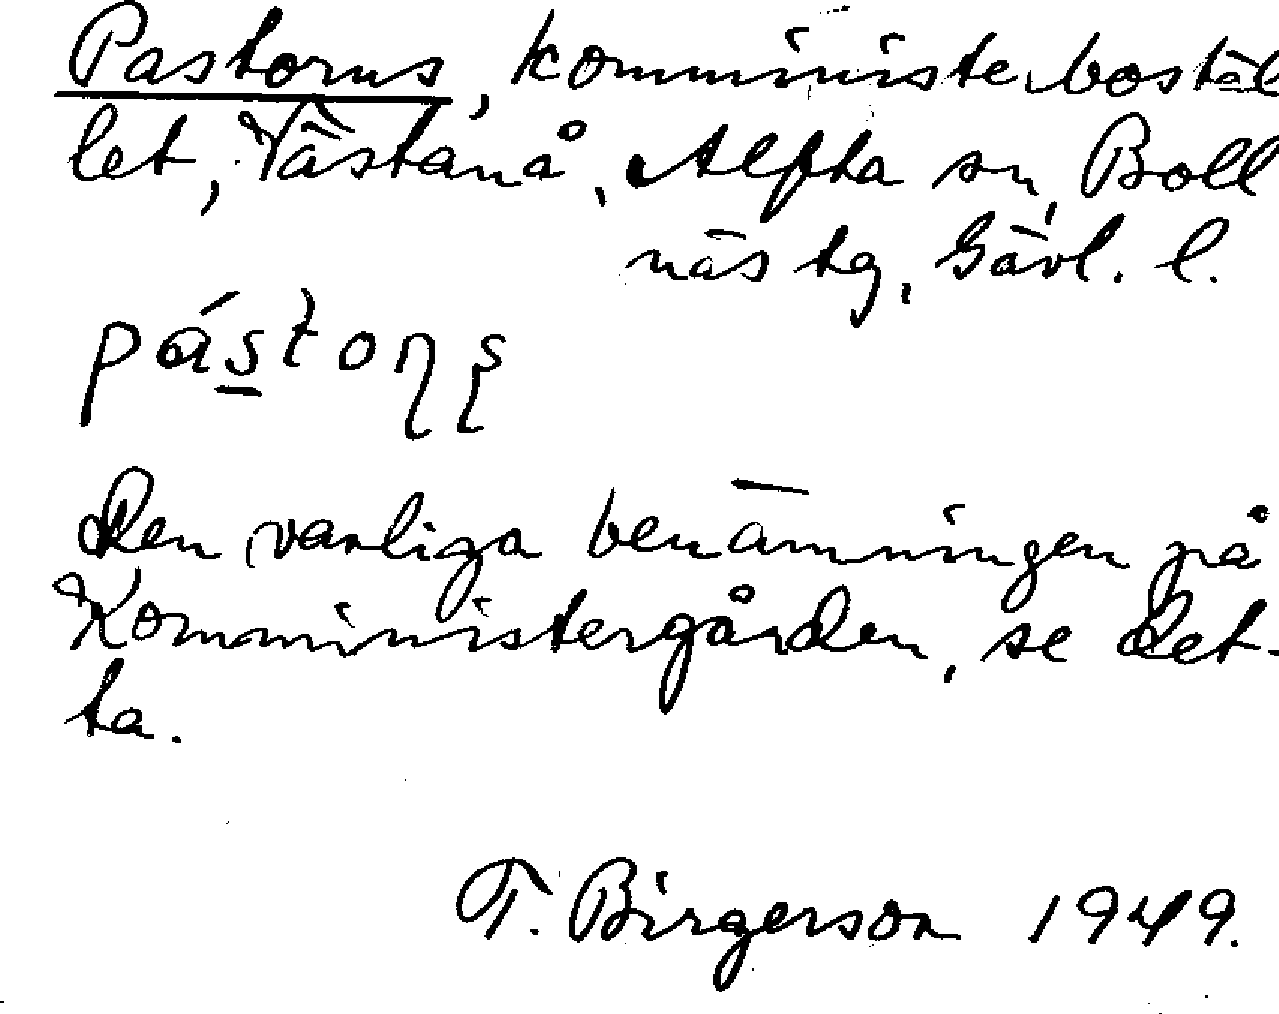 Pastorns, komministerbostäl
let, Västanå, Alfta sn, Boll
näs tg, Gävl. l.
pástoɳʂ
Den vanliga benämningen på
Komministergården, se det-
ta.
T. Birgerson 1949.